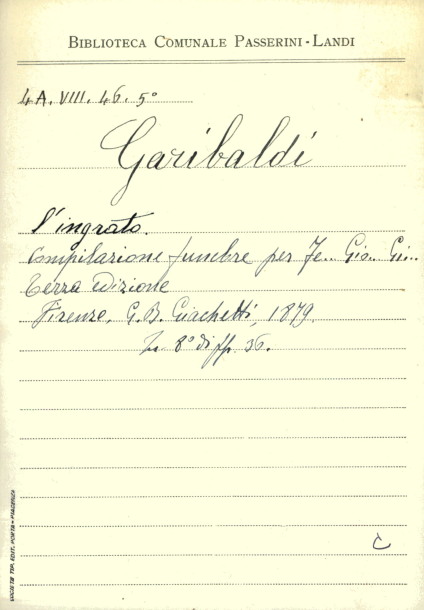 BIBLIOTECA COMUNALE PASSERINI-LANDI
4A. VIII. 46. 5°
Garibaldi
l'ingrato.
Compilazione funebre per Fe... Gio... Gu...
Terza edizione
Firenze, G. B. Giachetti, 1879.
In 8° di pp. 36.
C
SOCIETÀ TIP. EDIT. PORTA - PIACENZA